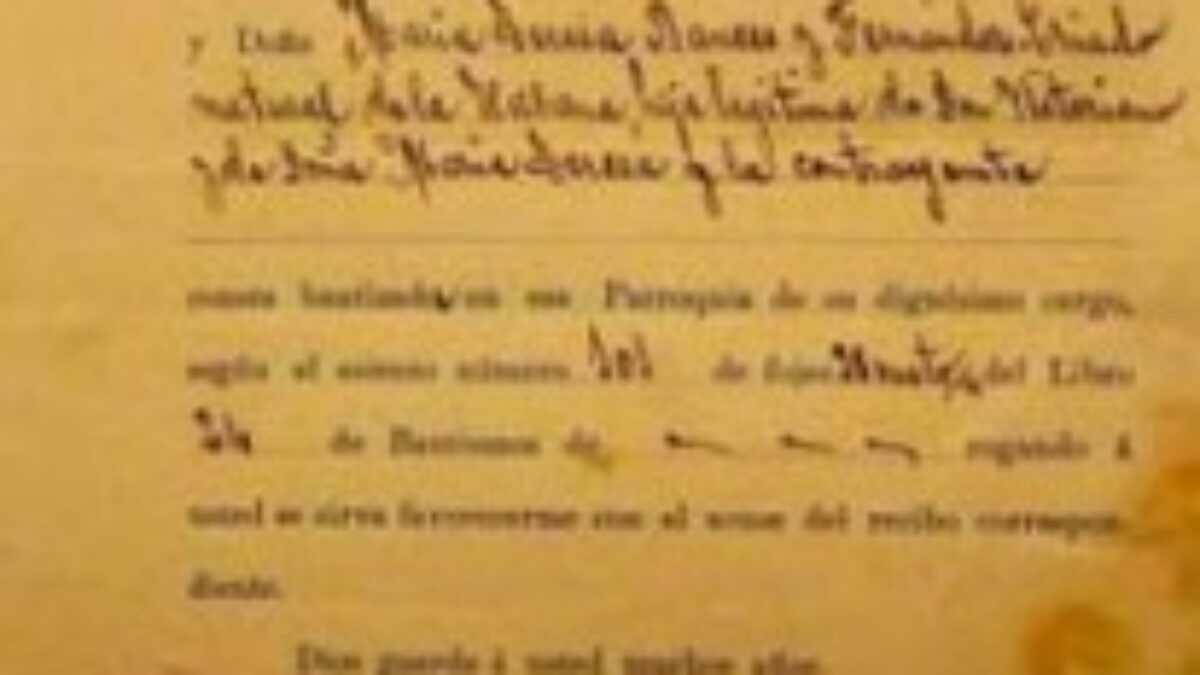 y Doña María Teresa Bances y Fernández Criado
natural de la Habana, hija legitima de Dn Victoriano
y de Doña María Teresa y la contrayente
consta bautizada en esa Parroquia de su dignísimo cargo,
según el asiento número 101 de fojas del Libro
de Bautismos de rogando á
usted se sirva favorecerme con el acuse del recibo correspon-
diente.
Dios guarde á usted muchos años.